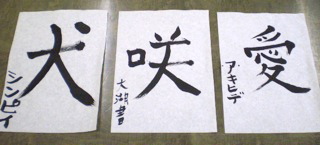 犬
シンピイ
咲
大湖書
愛
アキヒデ